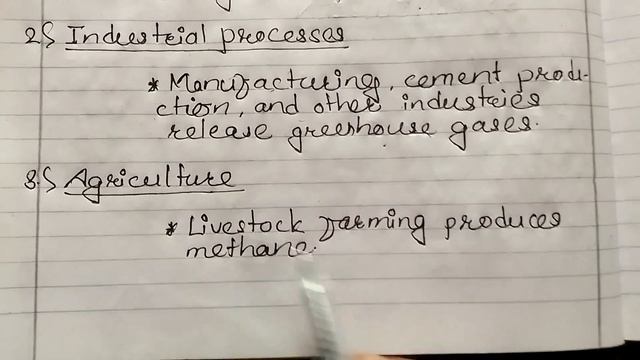 2) Industrial processes
* Manufacturing, cement produ-
ction, and other industries
release greenhouse gases.
3) Agriculture
* Livestock farming produces
methane.